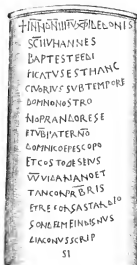 + IN N DNI IHV XPI DE DONIS
SCI IVHANNES
BAPTESTE EDI
FICATVS EST HANC
CIVORIVS SVB TEMPORE
DOMNO NOSTRO
LIOPRANDO RESE
ET VB PATERNO
DOMNICO EPESCOPO
ET COSTODES EIVS
VVIDALIANO ET
TANCOL PRBRIS
ET REFOL GASTALDIO
GONDELME INDIGNVS
DIACONVS SCRIP
SI